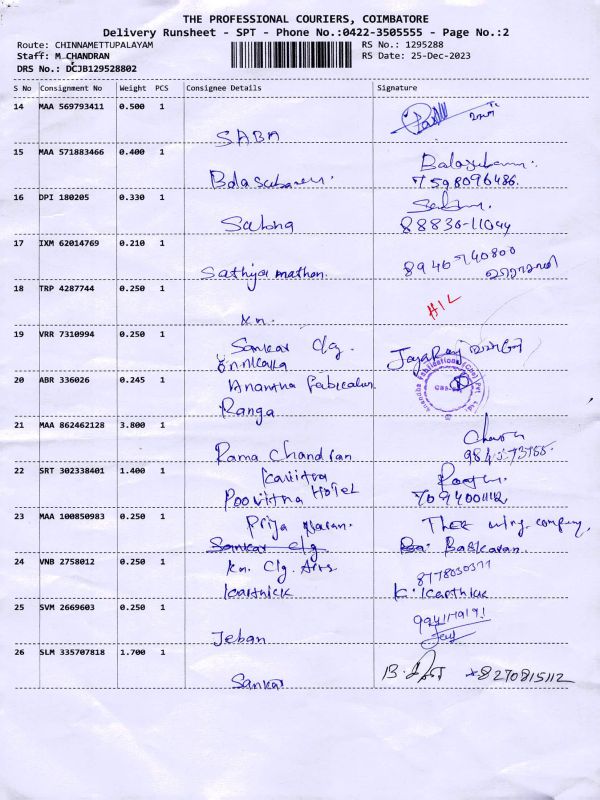 THE PROFESSIONAL COURIERS, COIMBATORE
Delivery Runsheet - SPT - Phone No.:0422-3505555 - Page No.:2
Route: CHINNAMETTUPALAYAM RS No.: 1295288
Staff: M CHANDRAN RS Date: 25-Dec-2023
DRS No.: DCJB129528802
S No Consignment No Weight PCS Consignee Details Signature
14 MAA 569793411 0.500 1
SABA
15 MAA 571883466 0.400 1
7598096486.
16 DPI 180205 0.330 1
88836-11044
17 IXM 62014769 0.210 1
Sathya mathan. 89467 40800
18 TRP 4287744 0.250 1
kn.
19 VRR 7310994 0.250 1
Sankar Clg. JayaRaj
20 ABR 336026 0.245 1
Anantha Fabrication
Ranga
21 MAA 862462128 3.800 1
Rama Chandran
22 SRT 302338401 1.400 1
Kavitha
Poovitha Hotel 7094001112
23 MAA 100850983 0.250 1
Priya
Sankar Clg Ba. Baskaran.
24 VNB 2758012 0.250 1
kn. Clg. Arts 8778030377
Karthick K. Karthick
25 SVM 2669603 0.250 1
Jeban
26 SLM 335707818 1.700 1
Sankar 8270815112